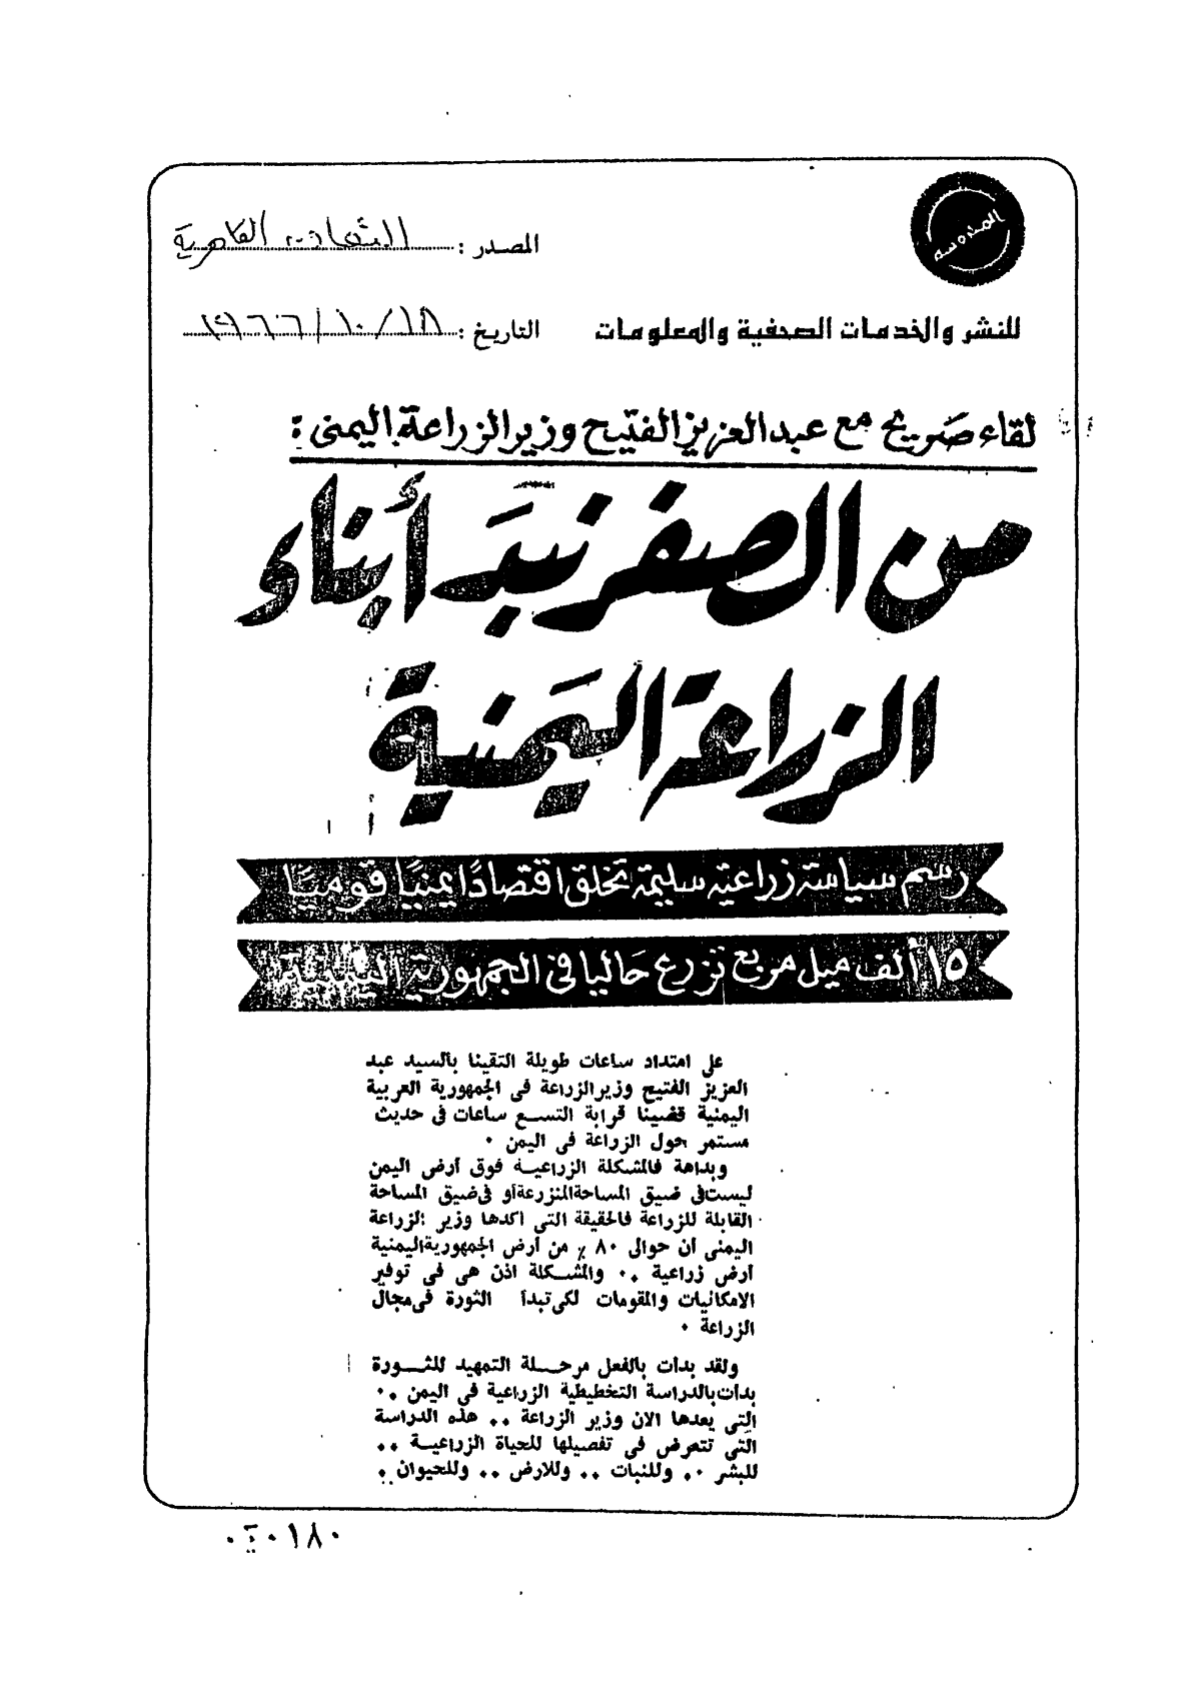 المصدر : التعاون القاهرية
للنشر والخدمات الصحفية والمعلومات
التاريخ : ١٩٦٦/١٠/١٨
لقاء صريح مع عبد العزيز الفتيح وزير الزراعة اليمنى :
من الصفر نبدأ بناء
الزراعة اليمنية
رسم سياسة زراعية سليمة تخلق اقتصادًا يمنيًا قوميًا
١٥ ألف ميل مربع تزرع حاليا فى الجمهورية اليمنية
على امتداد ساعات طويلة التقينا بالسيد عبد
العزيز الفتيح وزير الزراعة فى الجمهورية العربية
اليمنية قضينا قرابة التسع ساعات فى حديث
مستمر حول الزراعة فى اليمن .
وبداهة فالمشكلة الزراعية فوق أرض اليمن
ليست فى ضيق المساحة المنزرعة أو فى ضيق المساحة
القابلة للزراعة فالحقيقة التى اكدها وزير الزراعة
اليمنى أن حوالى ٨٠ ٪ من أرض الجمهورية اليمنية
أرض زراعية .. والمشكلة اذن هى فى توفير
الامكانيات والمقومات لكى تبدأ الثورة فى مجال
الزراعة .
ولقد بدات بالفعل مرحلة التمهيد للثورة
بدات بالدراسة التخطيطية الزراعية فى اليمن ..
التى يعدها الان وزير الزراعة .. هذه الدراسة
التى تتعرض فى تفصيلها للحياة الزراعية ..
للبشر .. وللنبات .. وللارض .. وللحيوان ..